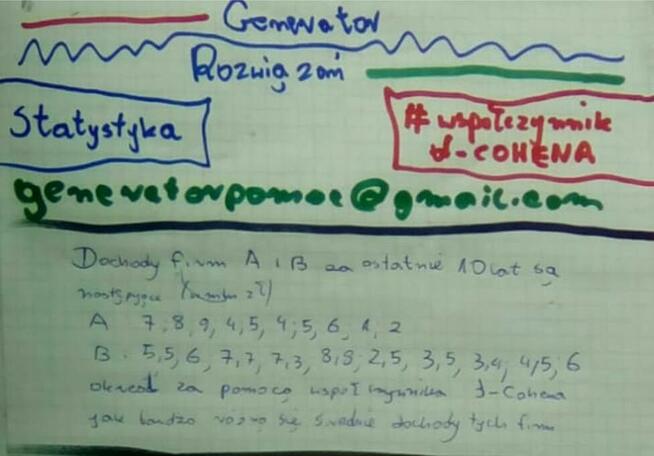 Generator
Rozwiązań
Statystyka
# współczynnik
d-COHENA
generatorpomoc@gmail.com
Dochody firm A i B za ostatnie 10 lat są
następujące (w mln zł)
A 7, 8, 9, 4, 5, 4, 5, 6, 1, 2
B. 5,5, 6, 7,7, 7,3, 8,8, 2,5, 3,5, 3,4, 4,5, 6
określ za pomocą współczynnika d-Cohena
jak bardzo różnią się średnie dochody tych firm